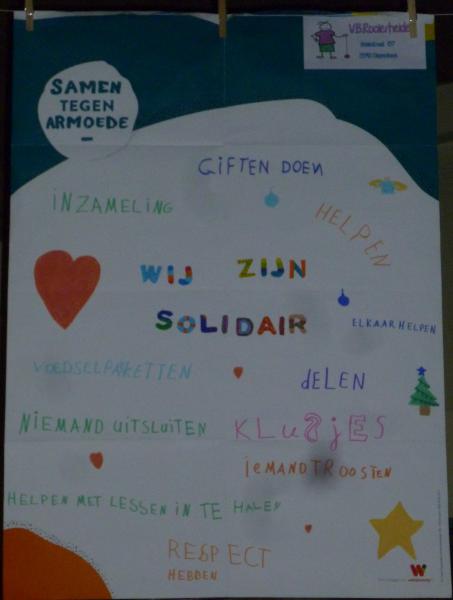 V.B.Rooierheide
SAMEN
TEGEN
ARMOEDE
GIFTEN DOEN
INZAMELING
HELPEN
WIJ ZIJN
SOLIDAIR
ELKAAR HELPEN
VOEDSELPAKETTEN
dELEN
NIEMAND UITSLUITEN
KLUSjES
iEMAND TROOSTEN
HELPEN MET LESSEN IN TE HALEN
RESPECT
HEBBEN
W